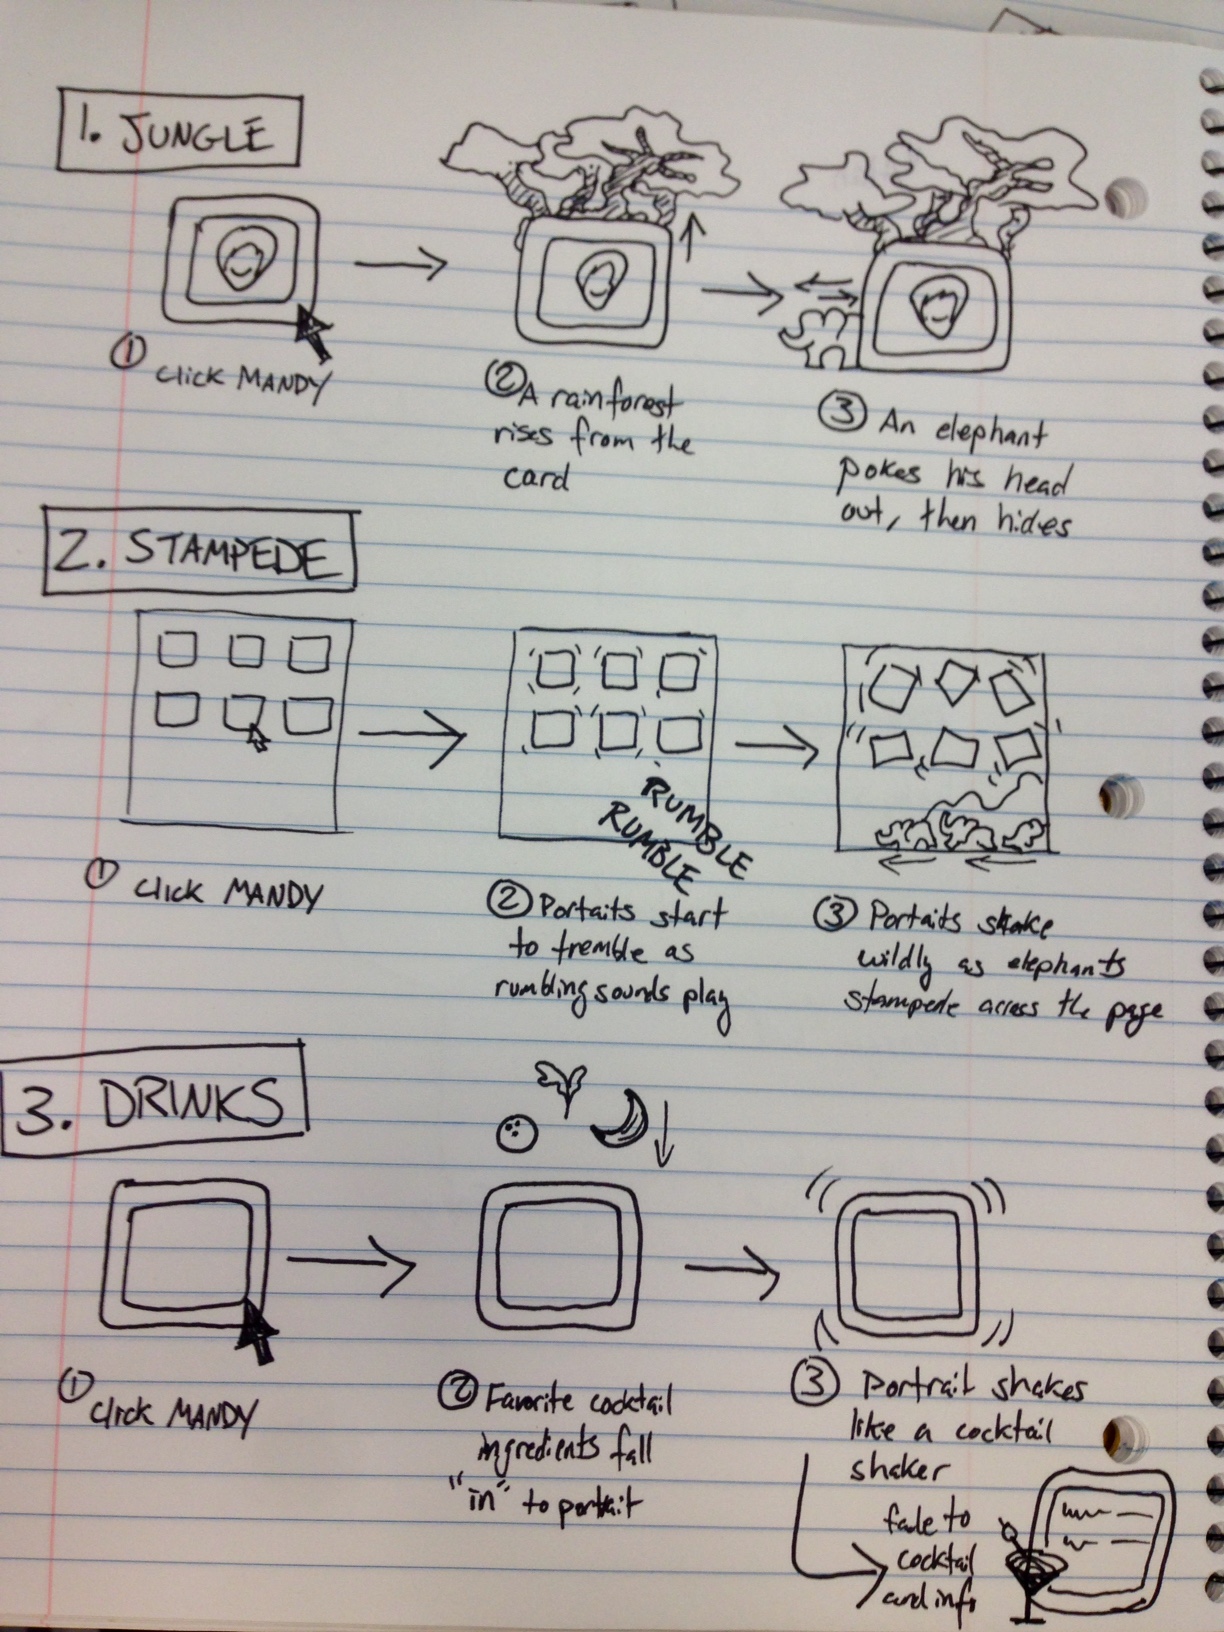 1. JUNGLE
① Click MANDY
② A rainforest
rises from the
card
③ An elephant
pokes his head
out, then hides
2. STAMPEDE
RUMBLE
RUMBLE
① Click MANDY
② Portaits start
to tremble as
rumbling sounds play
③ Portaits shake
wildly as elephants
stampede across the page
3. DRINKS
① Click MANDY
② Favorite cocktail
ingredients fall
"in" to portrait
③ Portrait shakes
like a cocktail
shaker
fade to
cocktail
and info